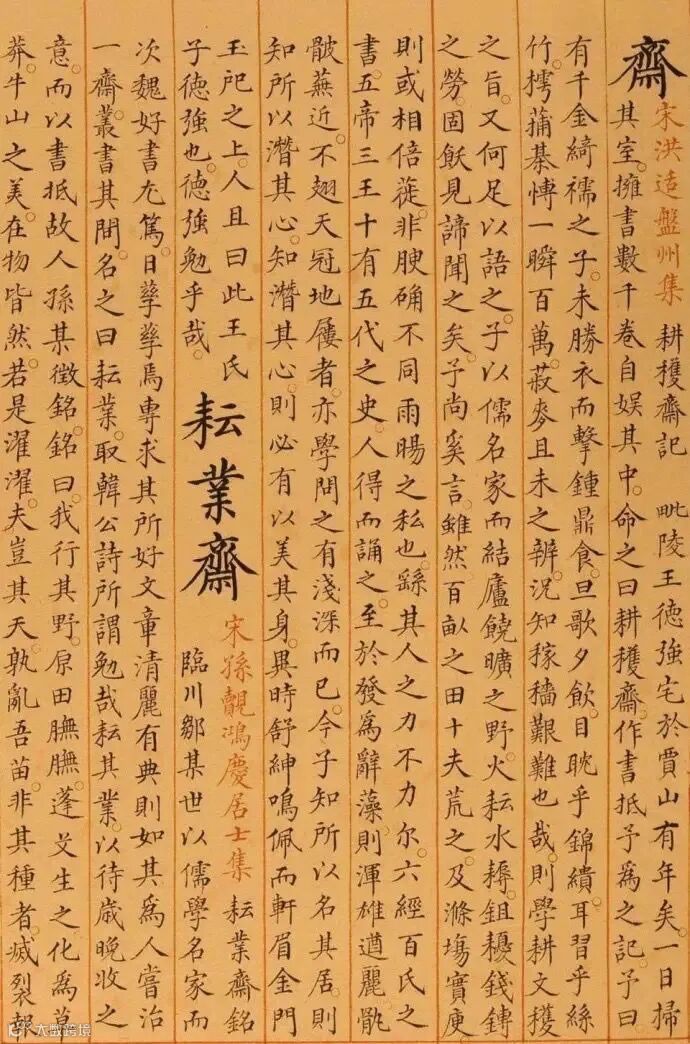 齋
宋洪适盤州集 耕穫齋記 毗陵王德強宅於賈山有年矣。一日掃
其室。擁書數千卷自娛其中。命之曰耕穫齋。作書抵予為之記。予曰
有千金綺襦之子。未勝衣而擊鍾鼎食。旦歌夕飲。目眈乎錦繢。耳習乎絲
竹。摴蒱棊愽一瞬百萬。菽麥且未之辨。況知稼穡艱難也哉。則學耕文穫
之旨。又何足以語之。子以儒名家而結廬饒曠之野。火耘水耨。鉏耰錢鎛
之勞。固飫見諦聞之矣。予尚奚言。雖然百畝之田十夫荒之。及滌場實庾
則或相倍蓰。非腴确不同雨暘之私也。繇其人之力不力尔。六經百氏之
書。五帝三王十有五代之史。人得而誦之。至於發為辭藻。則渾雄遒麗。骩
骳蕪近。不翅天冠地屨者。亦學問之有淺深而已。今子知所以名其居。則
知所以潛其心。知潛其心則必有以美其身。異時舒紳鳴佩而軒眉金門
玉戺之上。人且曰此王氏
子德強也。德強勉乎哉。
耘業齋
宋孫覿鴻慶居士集 耘業齋銘
臨川鄒某世以儒學名家而
次魏好書尤篤。日孳孳焉專求其所好。文章清麗有典則。如其為人。嘗治
一齋。叢書其間。名之曰耘業。取韓公詩所謂勉哉耘其業。以待歲晚收之
意。而以書抵故人孫某徵銘。銘曰。我行其野。原田膴膴。蓬艾生之。化為草
莽。牛山之美。在物皆然。若是濯濯。夫豈其天。孰亂吾苗。非其種者。滅裂報
大數跨境